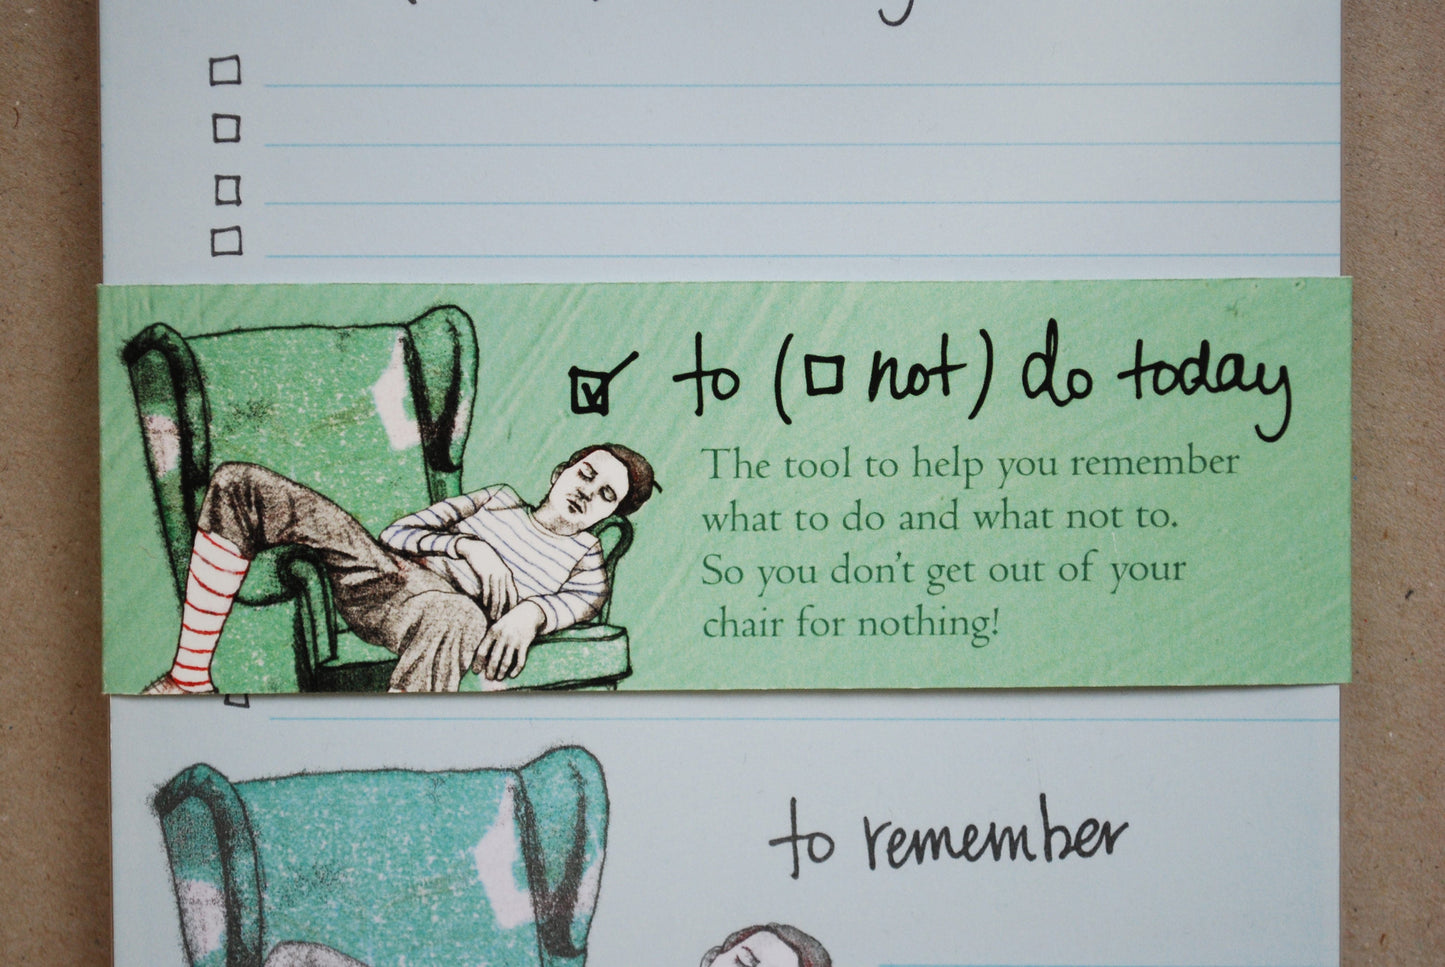 to ( not) do today
The tool to help you remember
what to do and what not to.
So you don't get out of your
chair for nothing!
to remember